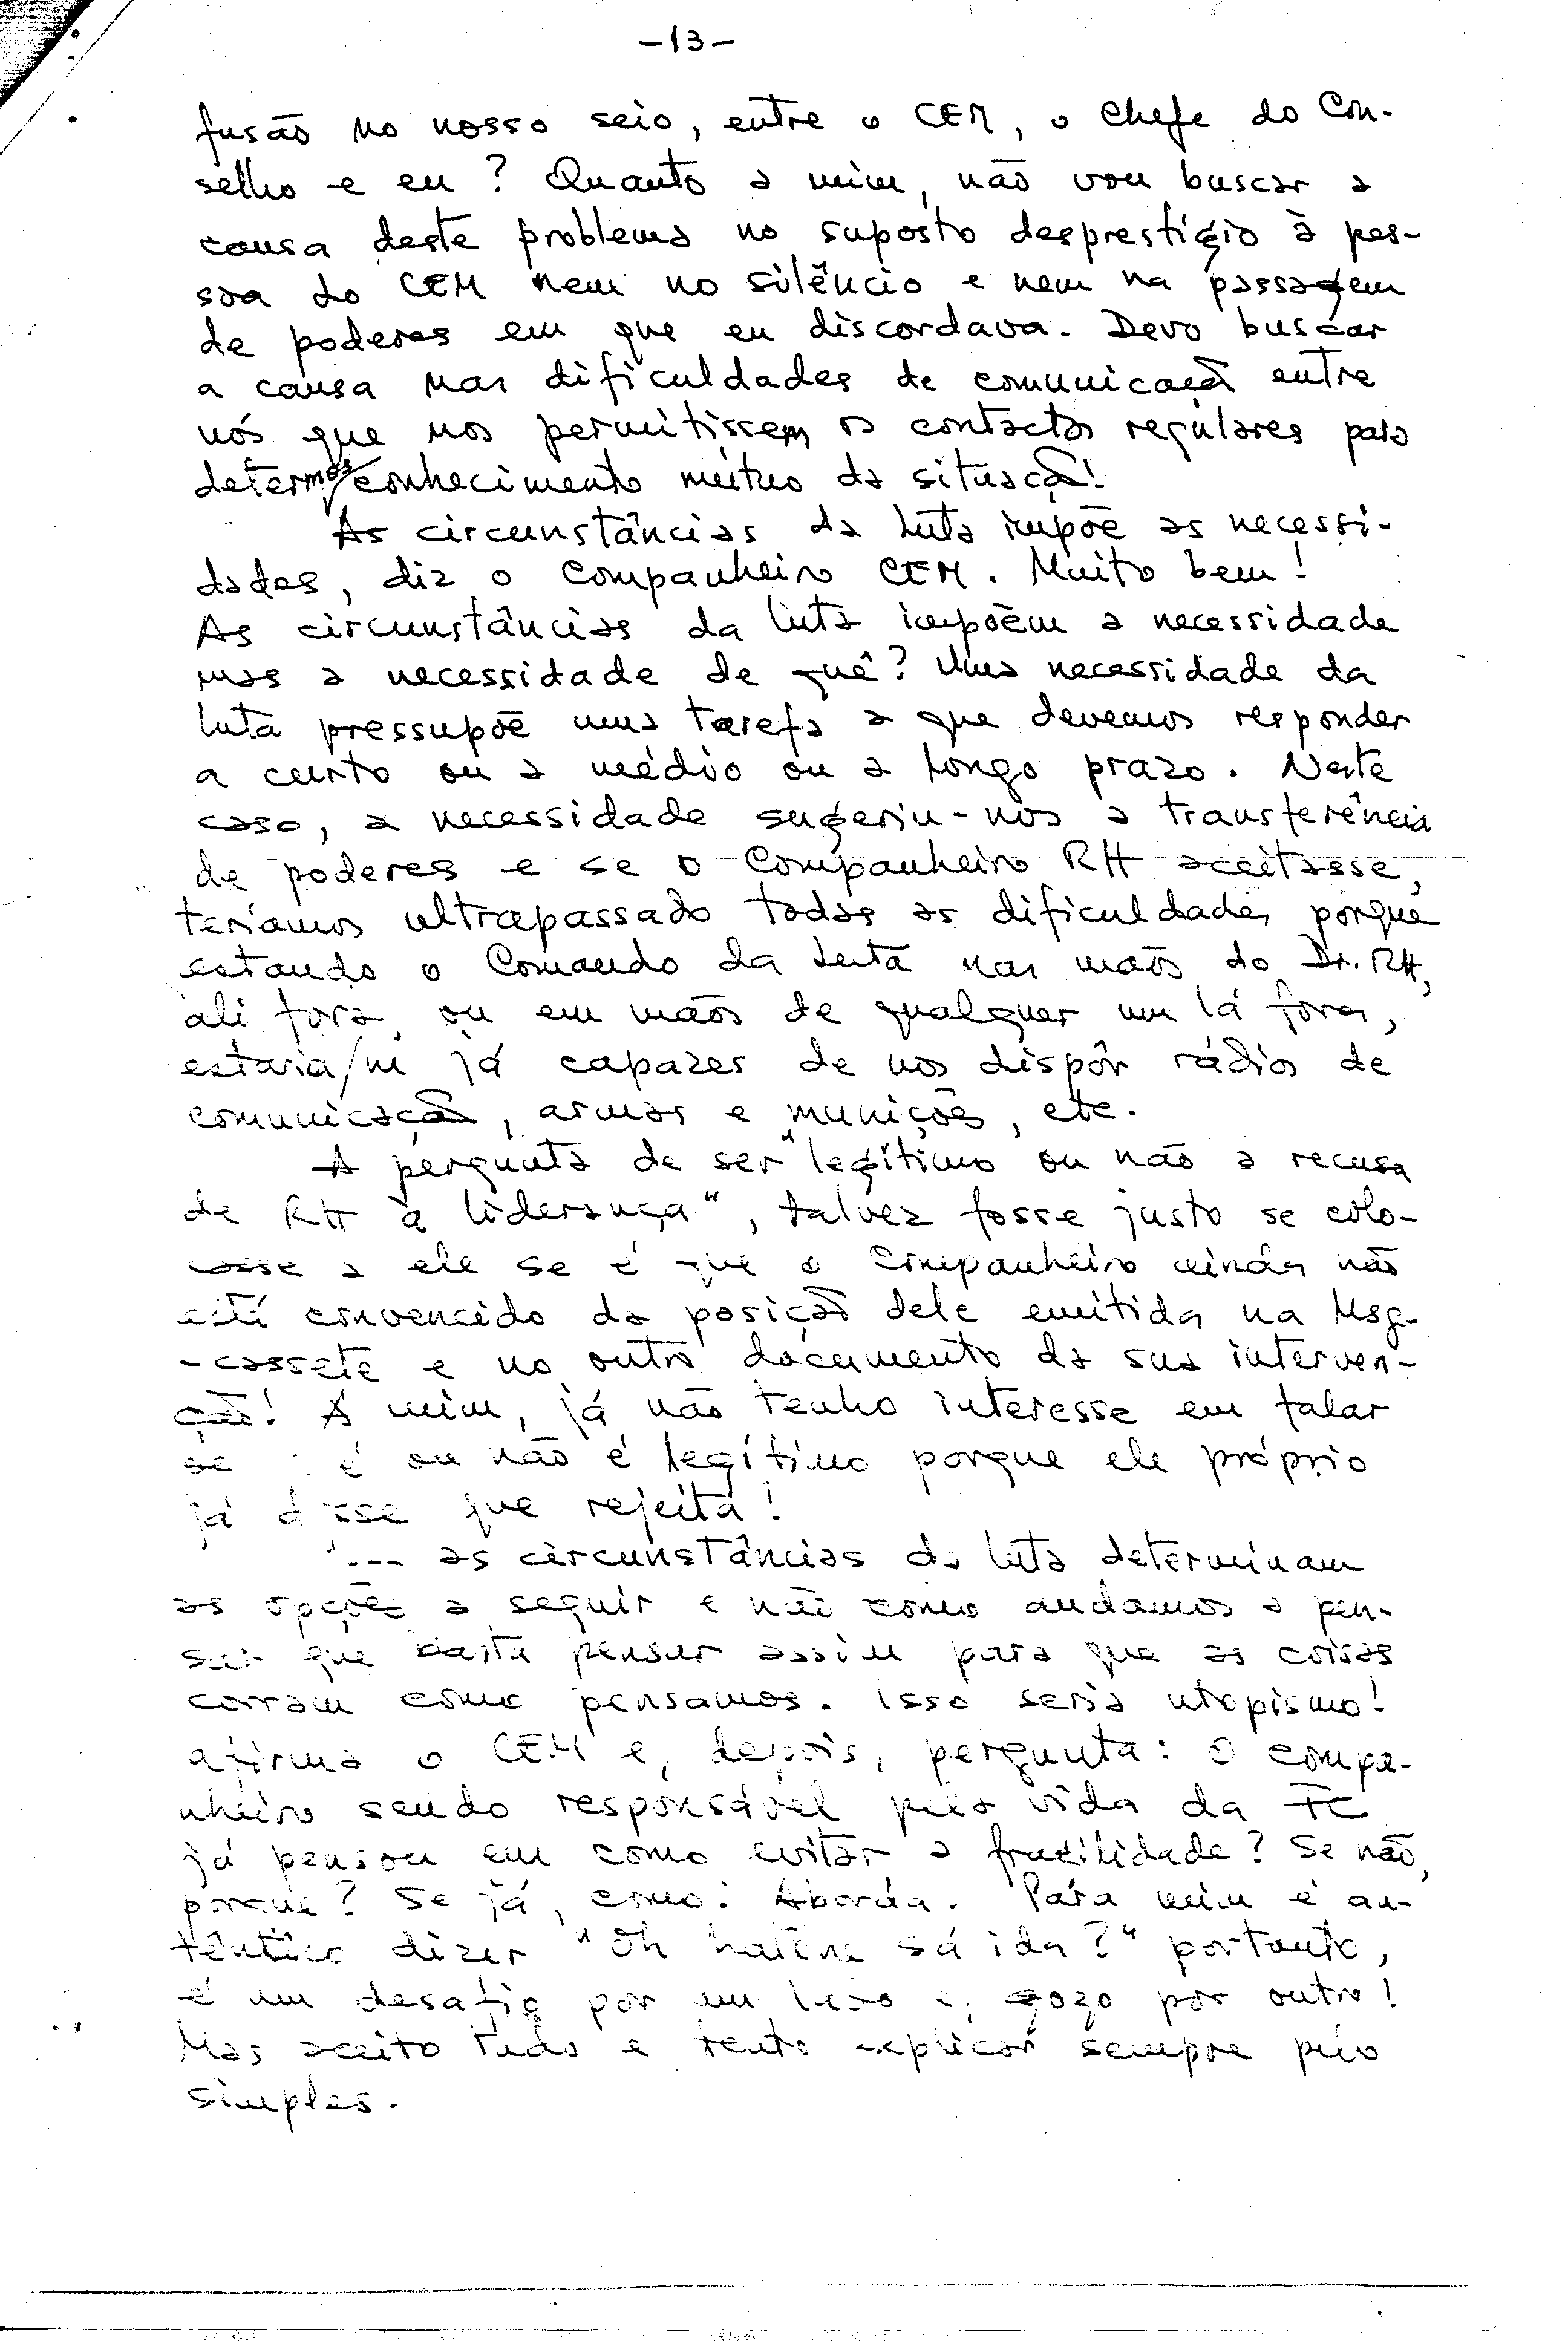 -13-
fusão no nosso seio, entre o CEM, o Chefe do Con-
selho e eu? Quanto a mim, não vou buscar a
causa deste problema no suposto desprestígio à pes-
soa do CEM nem no silêncio e nem na passagem
de poderes em que eu discordava. Devo buscar
a causa nas dificuldades de comunicação entre
nós que nos permitissem os contactos regulares para
determos conhecimento mútuo da situação!
As circunstâncias da luta impõe as necessi-
dades, diz o Companheiro CEM. Muito bem!
As circunstâncias da luta impõem a necessidade
mas a necessidade de quê? Uma necessidade da
luta pressupõe uma tarefa a que devemos responder
a curto ou a médio ou a longo prazo. Neste
caso, a necessidade sugeriu-nos a transferência
de poderes e se o Companheiro RH aceitasse,
teríamos ultrapassado todas as dificuldades porque
estando o Comando da Luta nas mãos do Dr. RH,
ali fora, ou em mãos de qualquer um lá fora,
estaria/m já capazes de nos dispôr rádios de
comunicação, armas e munições, etc.
A pergunta de ser "legítimo ou não a recusa
de RH à liderança", talvez fosse justo se colo-
casse a ele se é que o Companheiro ainda não
está convencido da posição dele emitida na Msg-
-cassete e no outro documento da sua interven-
ção! A mim, já não tenho interesse em falar
se é ou não é legítimo porque ele próprio
já disse que rejeita!
"... as circunstâncias da luta determinam
as opções a seguir e não como andamos a pen-
sar que basta pensar assim para que as coisas
corram como pensamos. Isso seria utopismo!
afirma o CEM e, depois, pergunta: O compa-
nheiro sendo responsável pela vida da FC
já pensou em como evitar a fragilidade? Se não,
porquê? Se já, como? Aborda. Para mim é au-
têntico dizer "Oh sá ida?" portanto,
é um desafio por um lado e, gozo por outro!
Mas aceito tudo e tento explicar sempre pelo
simples.